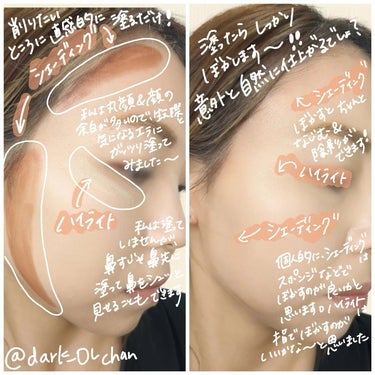 削りたい
ところに直感的に塗るだけ!
シェーディング
私は丸顔&顔の
余白が多いので放題
気になるエラに
ガッツリ塗って
みました〜
ハイライト
私は塗って
しませんが
鼻すじや鼻先に
塗って鼻をシュッと
見せることもできます
@dark_OL_chan
塗ったらしっかり
ぼかします〜!!
意外と自然に仕上がるでしょ?
シェーディング
ぼかすとちゃんと
なじむ&
陰影が
できます!
ハイライト
シェーディング
個人的にシェーディングは
スポンジなどで
ぼかすのが良いかと
思います。ハイライトは
指でぼかすのが
いいかな〜と思いました